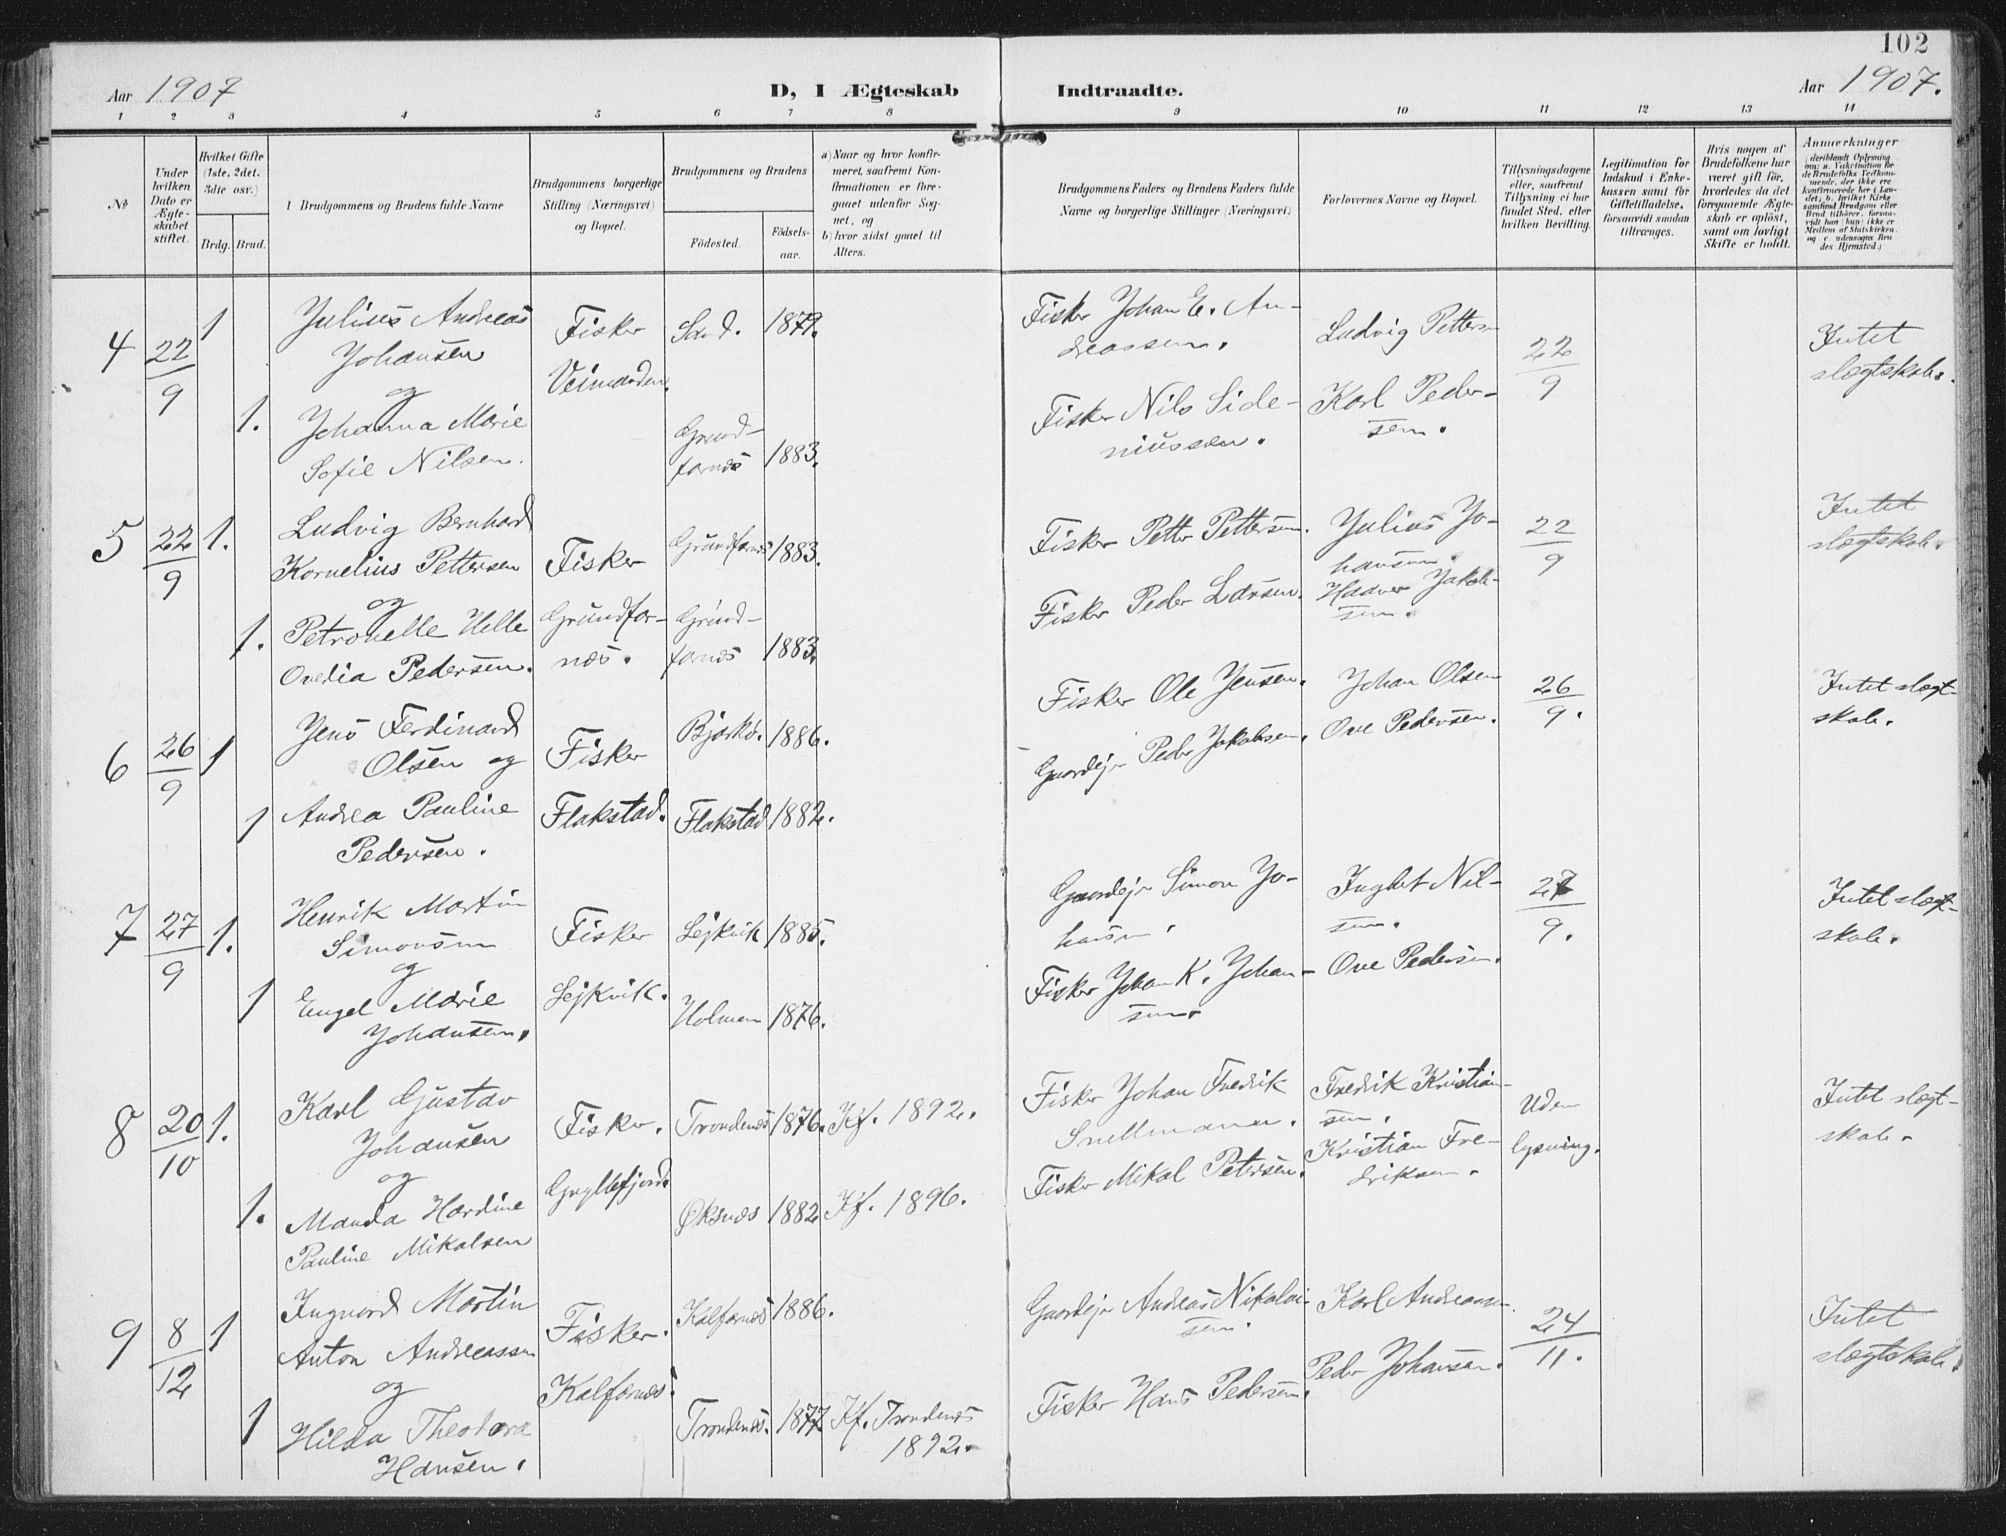 102
Aar 1907
D, I Ægteskab Indtraadte.
Aar 1907.
1 2 3 4 5 6 7 8 9 10 11 12 13 14
No
Under hvilken Dato er Ægteskabet stiftet.
Hvilket Gifte (1ste, 2det, 3die osv.)
Brdg. Brud.
Brudgommens og Brudens fulde Navne
Brudgommens borgerlige Stilling (Næringsvei) og Bopæl.
Brudgommens og Brudens
Fødested.
Fødsels-aar.
a) Naar og hvor konfirmeret, saafremt Konfirmationen er foregaaet udenfor Sognet, og
b) hvor sidst gaaet til Alters.
Brudgommens Faders og Brudens Faders fulde Navne og borgerlige Stillinger (Næringsvei)
Forlovernes Navne og Bopæl.
Tillysningsdagene eller, saafremt Tillysning ei har fundet Sted, efter hvilken Bevilling.
Legitimation for Indskud i Enkekassen samt for Giftetilladelse, forsaavidt saadan tiltrænges.
Hvis nogen af Brudefolkene har været gift før, hvorledes da det foregaaende Ægteskab er opløst, samt om lovligt Skifte er holdt.
Anmærkninger
4 22/9 1
Julius Andreas
Johansen
og
1. Johanna Marie
Sofie Nilsen.
Fisker
Sand. 1879.
Grund-
farnæs 1883.
Fisker Johan E. An-
dreassen.
Fisker Nils Side-
niussen.
Ludvig Petters
Karl Peder-
sen.
22/9
Intet
slægtskab.
5 22/9 1.
Ludvig Bernhard
Kornelius Pettersen
og
1. Petronelle Helle
Ovedia Pedersen.
Fisker
Grundfar-
næs.
Grundfarnæs 1883.
Grund-
farnæs 1883.
Fisker Petter Pettersen.
Fisker Peder Larsen.
Julius Jo-
hansen
Jakob-
sen.
22/9
Intet
slægtskab.
6 26/9 1
Jens Ferdinand
Olsen og
1 Andrea Pauline
Pedersen.
Fisker
Flakstad.
Bjarkø. 1886.
Flakstad 1882.
Fisker Ole Jensen.
Gaardejr Peder Jakobsen.
Johan Olsen
Ove Pedersen.
26/9.
Intet slægt-
skab.
7 27/9 1.
Henrik Martin
Simonsen
og
1 Engel Marie
Johansen.
Fisker
Lejkvik.
Lejkvik 1885.
Holmen 1876.
Gaardejr Simon Jo-
hansen.
Fisker Johan K. Johan-
sen.
Nil-
sen.
Ove Pedersen.
27/9.
Intet slægt-
skab.
8 20/10 1.
Karl Gustav
Johansen
og
1. Manda Hardine
Pauline Mikalsen
Fisker.
Gryllefjord.
Trondenæs 1876. Kf. 1892.
Øksnæs 1882 Kf. 1896.
Fisker Johan Fredrik
Snellmaner.
Fisker Mikal Petersen.
Fredrik Kristian-
sen.
Kristian Fre-
driksen.
Uden
lysning.
Intet slægt-
skab.
9 8/12 1
Ingvard Martin
Anton Andreassen
og
1 Hilda Theodora
Hansen.
Fisker.
Kalfarnæs.
Kalfarnæs 1886.
Trondenæs. 1877 Kf. Trondenæs
1892.
Gaardejr Andreas Nikolai-
sen.
Fisker Hans Pedersen.
Karl Andreassen.
Peder Johansen.
24/11.
Intet
slægtskab.